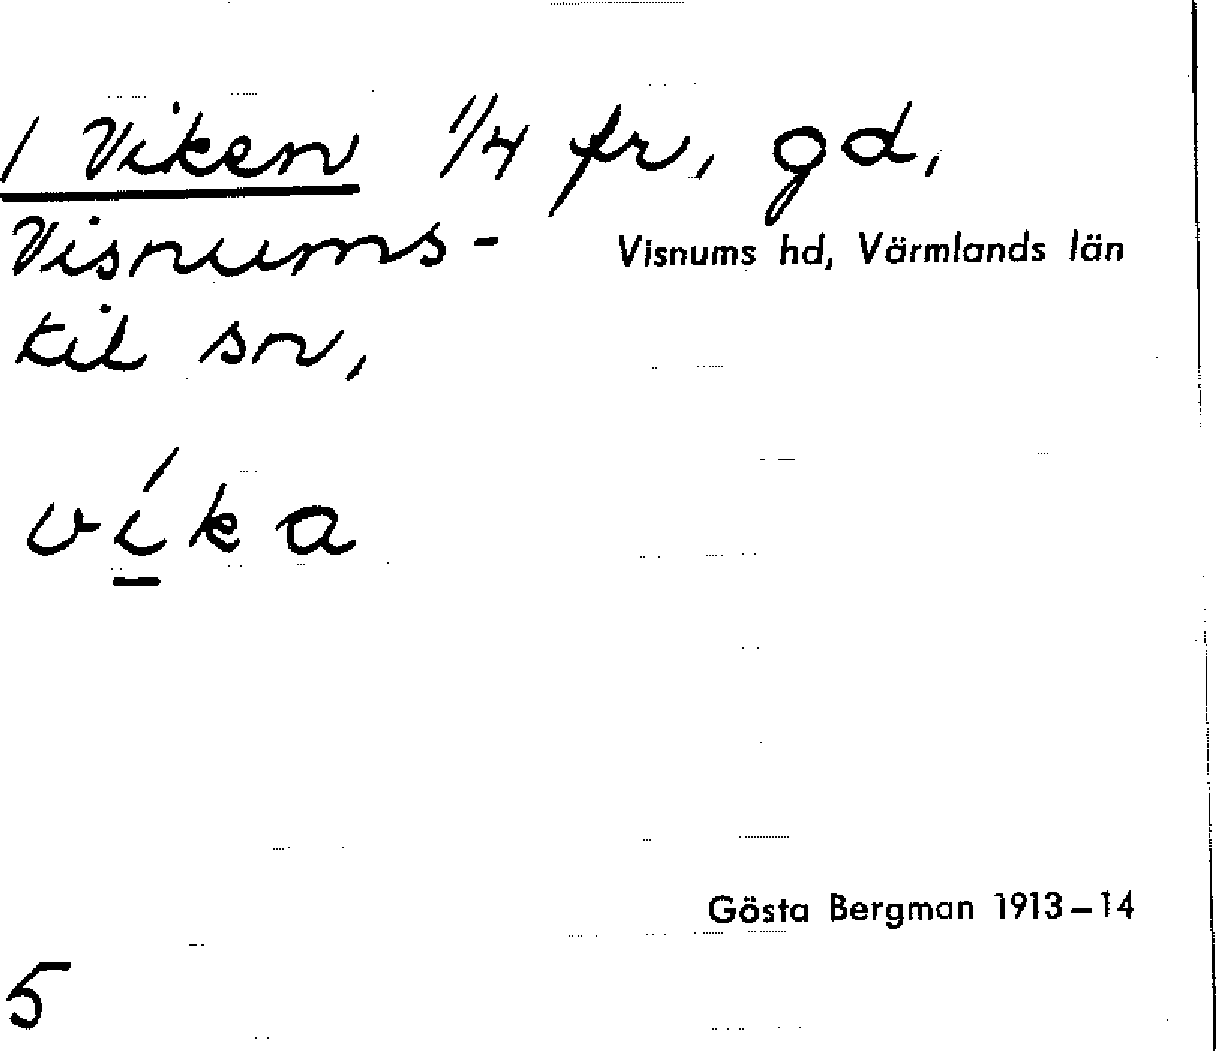 1 Viken 1/4 fr, gd,
Visnums-
kil sn,
Visnums hd, Värmlands län
víka
Gösta Bergman 1913–14
5